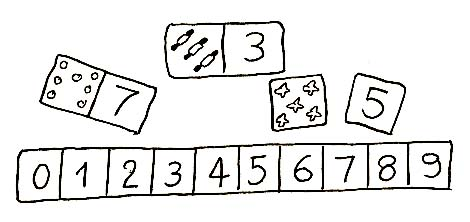 3
7
5
0 1 2 3 4 5 6 7 8 9